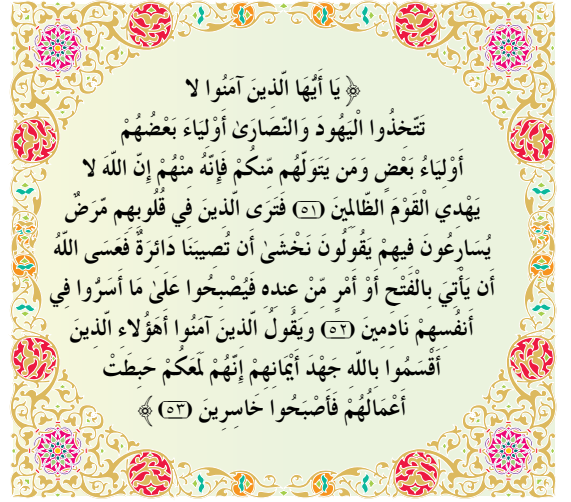 ﴿ يَا أَيُّهَا الَّذِينَ آمَنُوا لا
تَتَّخِذُوا الْيَهُودَ وَالنَّصَارَىٰ أَوْلِيَاءَ بَعْضُهُمْ
أَوْلِيَاءُ بَعْضٍ وَمَن يَتَوَلَّهُم مِّنكُمْ فَإِنَّهُ مِنْهُمْ إِنَّ اللَّهَ لا
يَهْدِي الْقَوْمَ الظَّالِمِينَ (٥١) فَتَرَى الَّذِينَ فِي قُلُوبِهِم مَّرَضٌ
يُسَارِعُونَ فِيهِمْ يَقُولُونَ نَخْشَىٰ أَن تُصِيبَنَا دَائِرَةٌ فَعَسَى اللَّهُ
أَن يَأْتِيَ بِالْفَتْحِ أَوْ أَمْرٍ مِّنْ عِندِهِ فَيُصْبِحُوا عَلَىٰ مَا أَسَرُّوا فِي
أَنفُسِهِمْ نَادِمِينَ (٥٢) وَيَقُولُ الَّذِينَ آمَنُوا أَهَؤُلاءِ الَّذِينَ
أَقْسَمُوا بِاللَّهِ جَهْدَ أَيْمَانِهِمْ إِنَّهُمْ لَمَعَكُمْ حَبِطَتْ
أَعْمَالُهُمْ فَأَصْبَحُوا خَاسِرِينَ (٥٣) ﴾